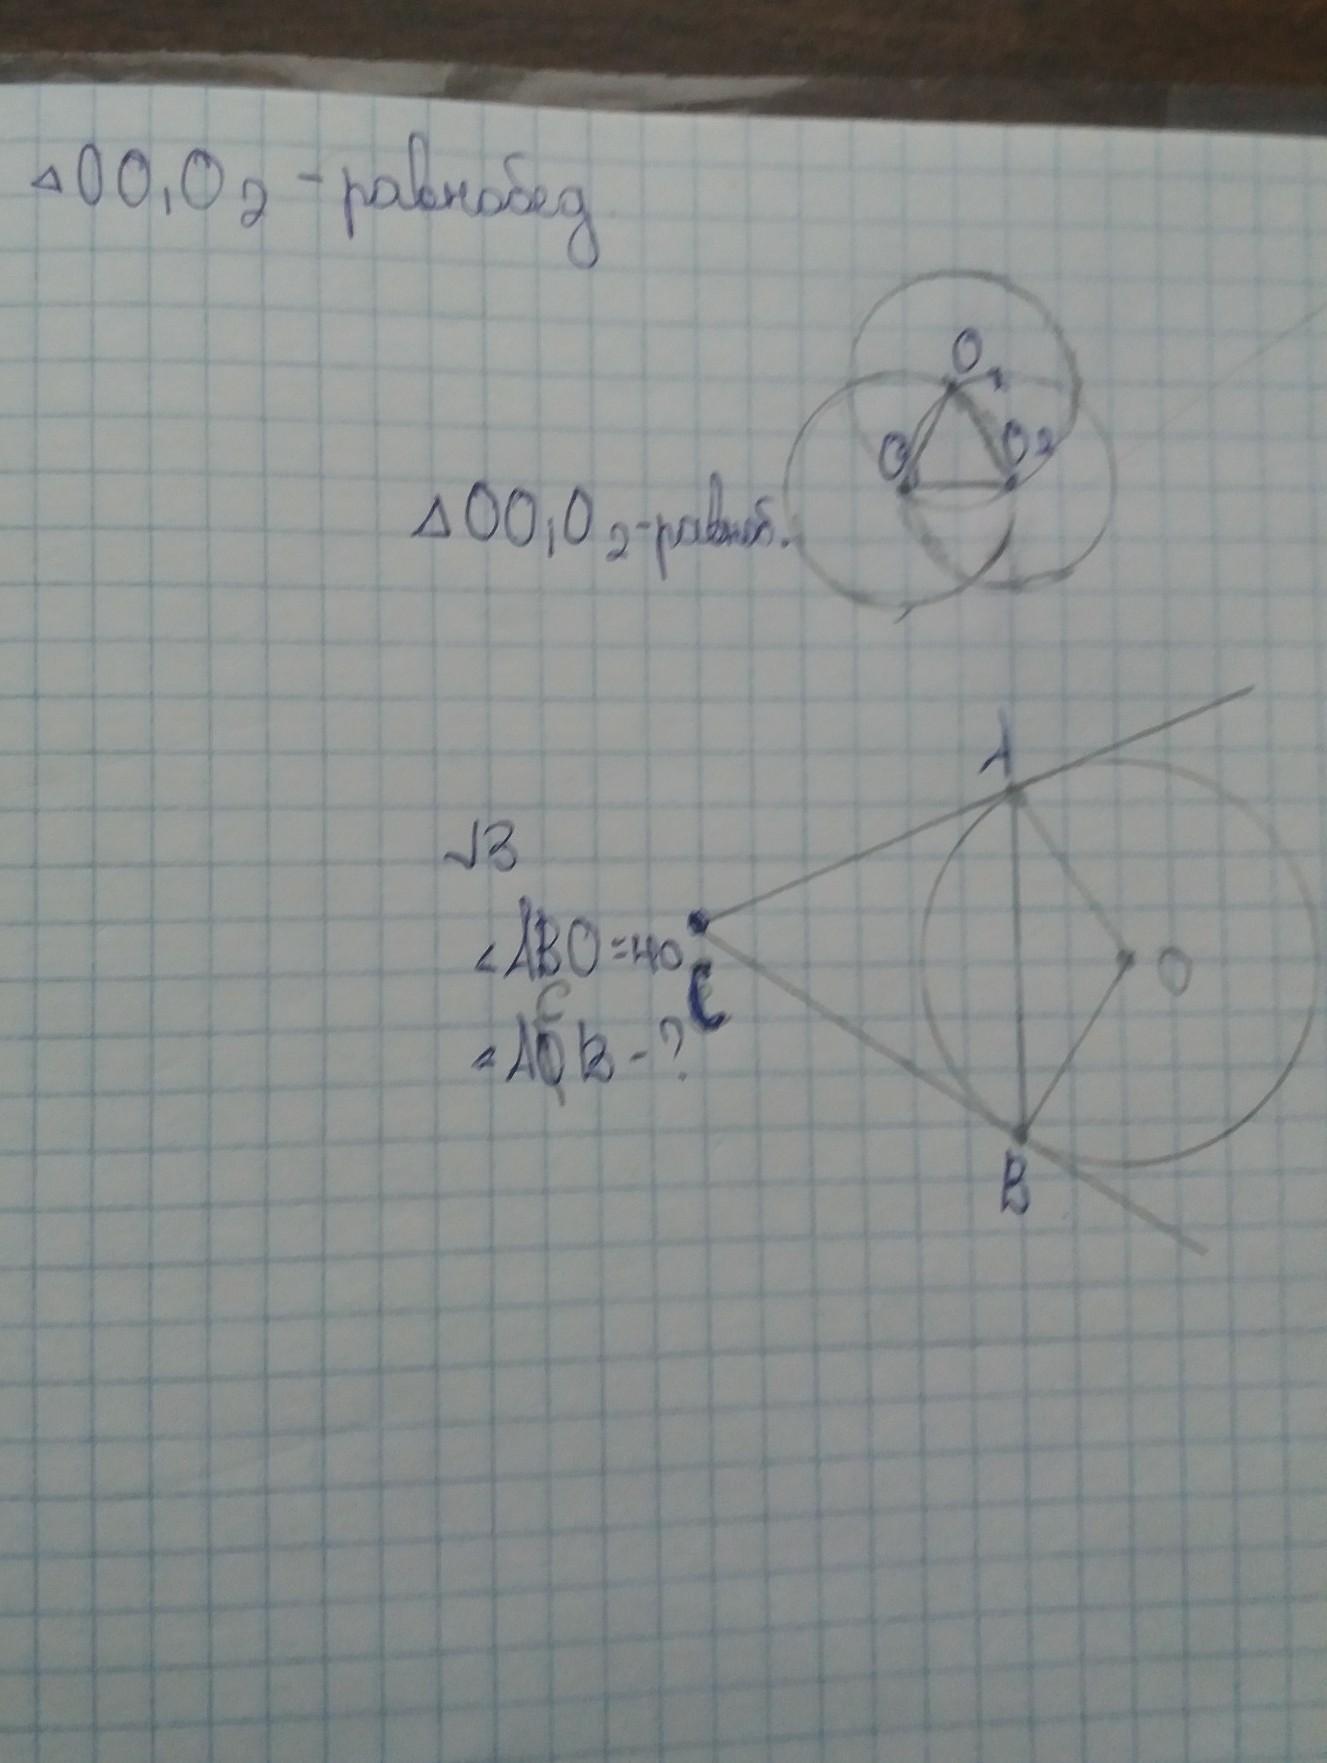 △OO₁O₂ - равнобед
O₁
O
O₂
△OO₁O₂ - равноб.
A
√3
∠ABO = 40
C
O
C
∠AOB - ?
B